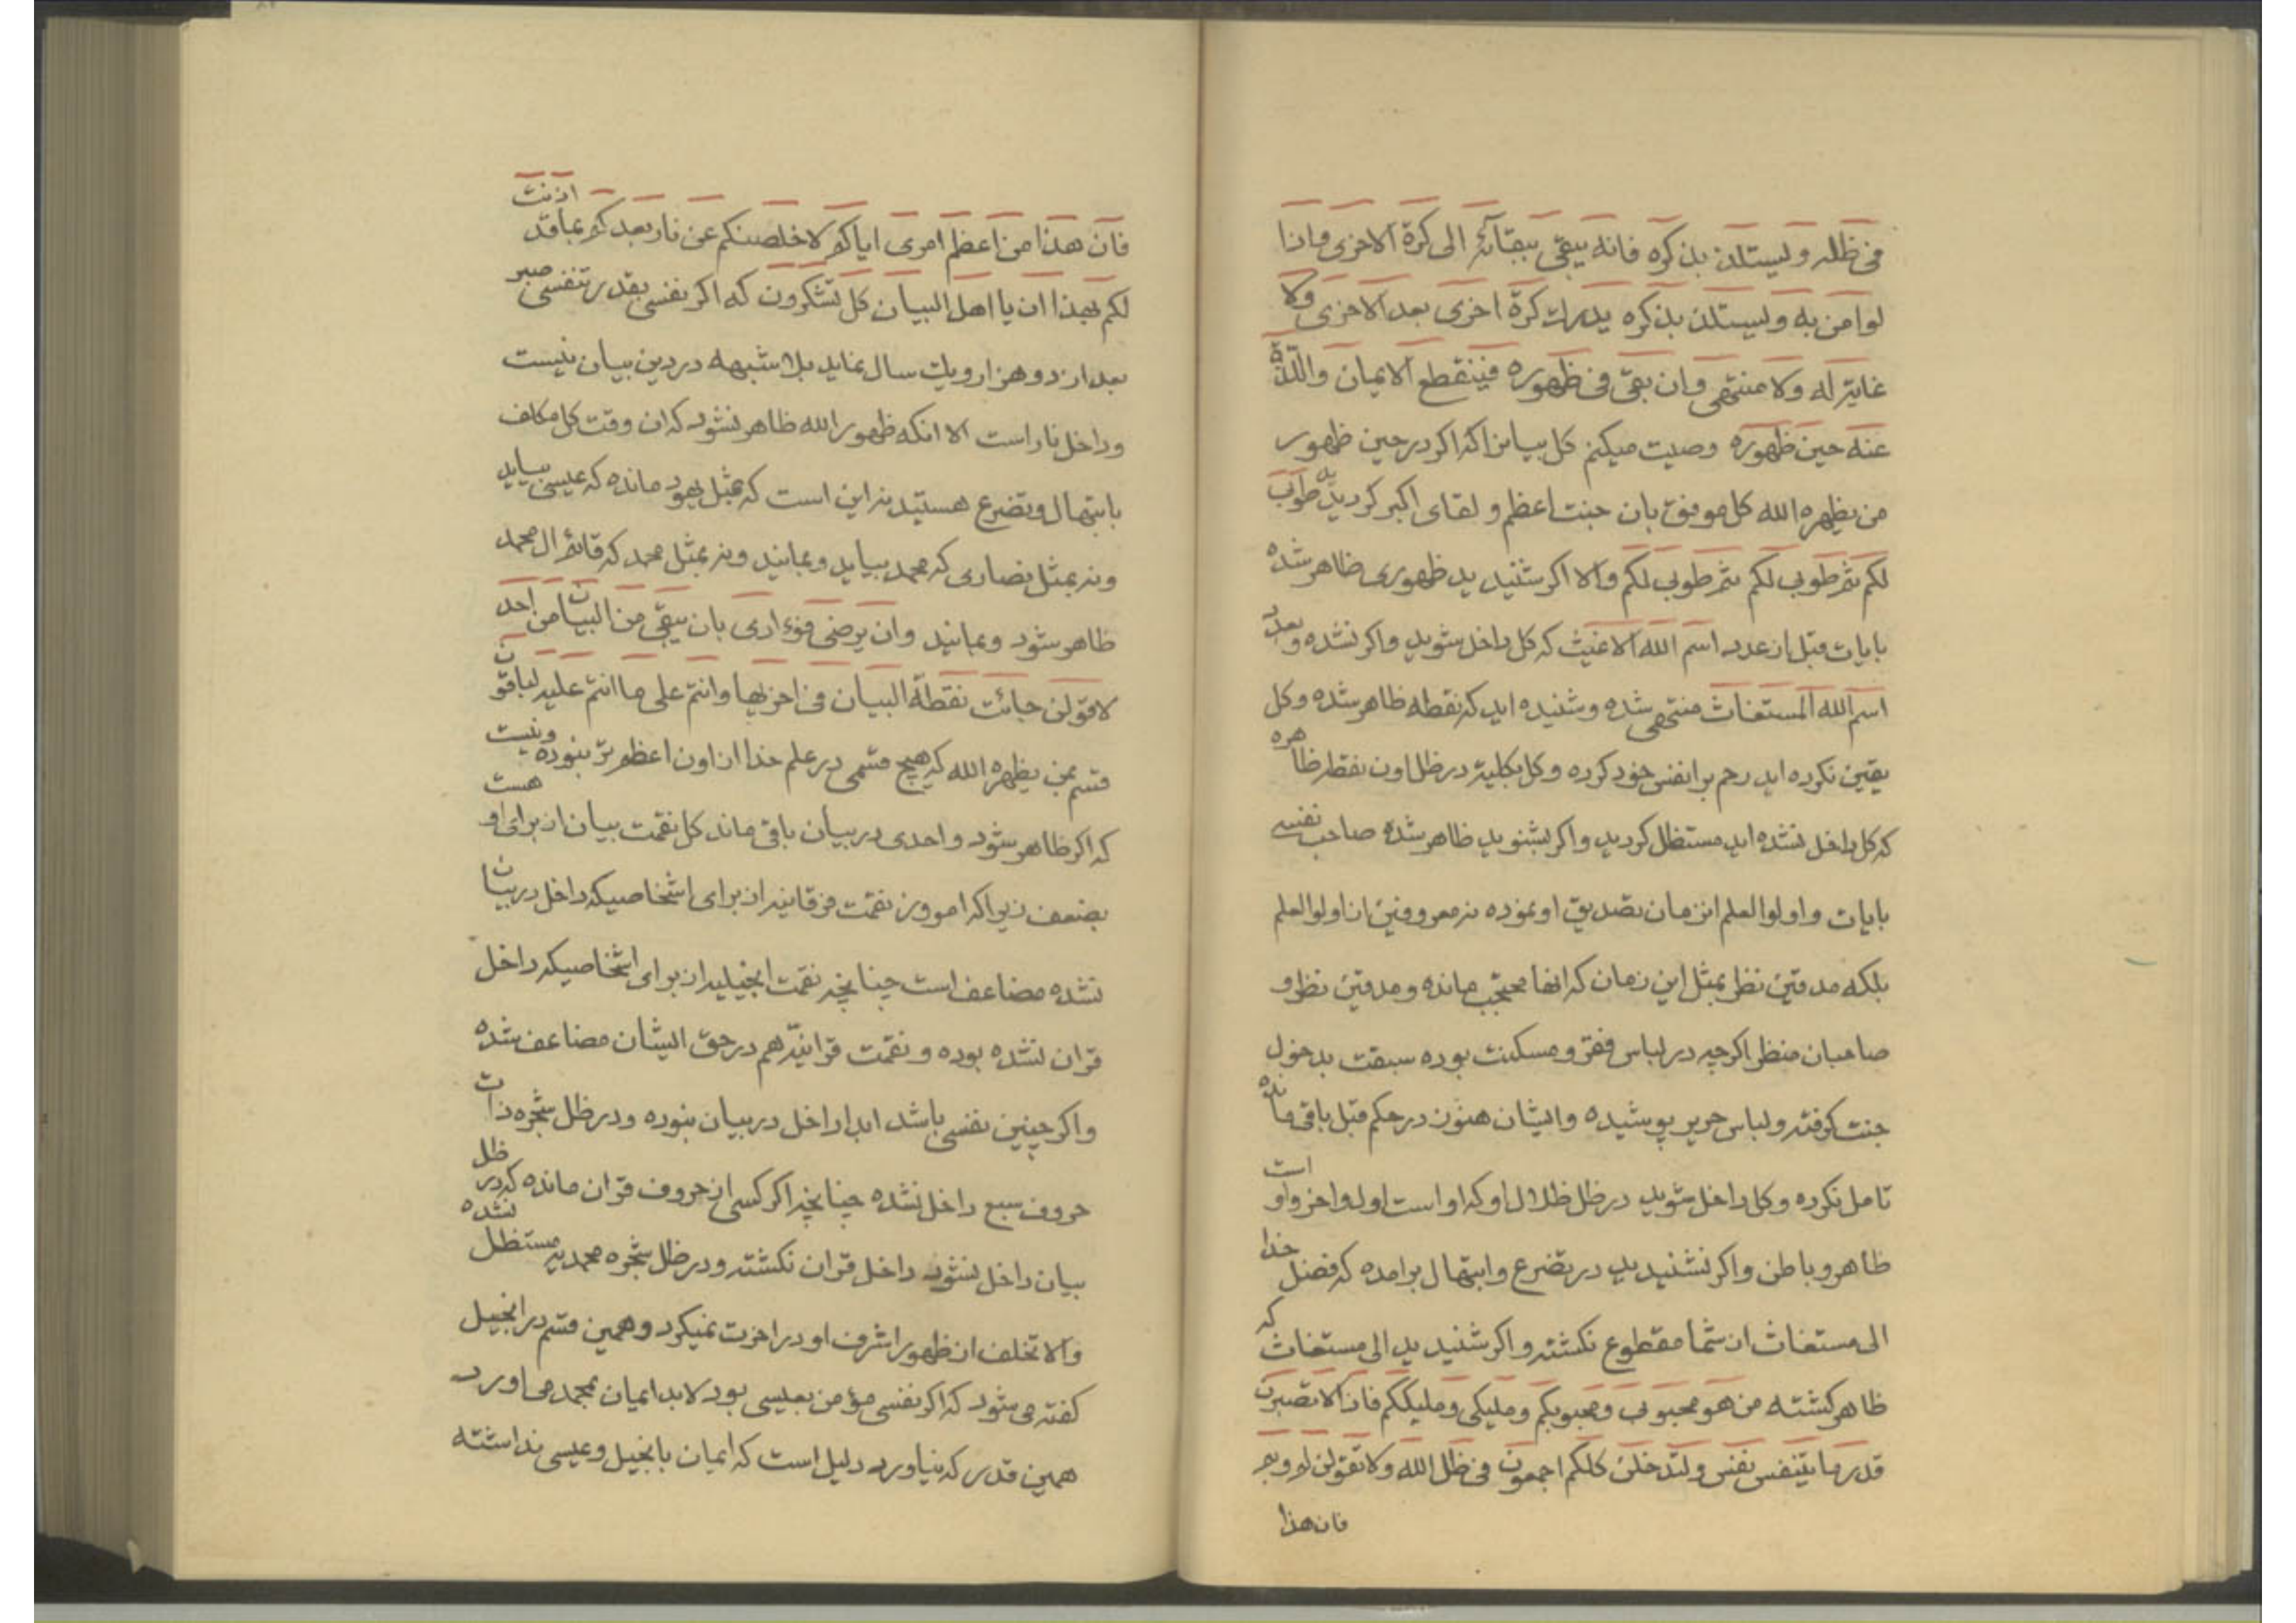 فی ظله ولیستلذن بذکره فانه یبقی ببقائه الی کرة الاخری واذا
لو امن به ولیستلذن بذکره یدرک کرة اخری بعد الاخری ولا
غایة له ولا منتهی وان بقی فی ظهوره فینقطع الایمان واللذة
عنه حین ظهوره وصیت میکنم کل بیانرا که اکر در حین ظهور
من یظهره الله کل موفق بان جنت اعظم و لقای اکبر کردیدید طوبی
لکم ثم طوبی لکم ثم طوبی لکم والا اکر شنیدید ظهوری ظاهر شده
بایات قبل از عدد اسم الله الاغیث که کل داخل شوید واکر نشده وبعدد
اسم الله المستغاث منتهی شده و شنیده اید که نقطه ظاهر شده وکل
یقین نکرده اید رحم بر انفس خود کرده وکل بکلیه در ظل اون نقطه ظاهره
که کل داخل نشده اید مستظل کردید واکر بشنوید ظاهر شده صاحب نفسی
بایات واولوا العلم انزمان تصدیق او نموده نه معروفین از اولوا العلم
بلکه مدقتین نظر بمثل این زمان که انها محتجب مانده ومدقتین نظر و
صاحبان منظر اکرچه در لباس فقر ومسکنت بوده سبقت بدخول
جنت کرفته ولباس حریر پوشیده وایشان هنوز در حکم قبل باقی مانده
تامل نکرده وکل داخل شوید در ظل ظلال او که او است اول واخر واو است
ظاهر وباطن واکر نشنیدید در تضرع وابتهال برامده که فضل خدا
الی مستغاث از شما مقطوع نکشته واکر شنیدید الی مستغاث که
ظاهر کشته من هو محبوبی ومحبوبکم وملیکی وملیککم فاذا لا تصبرن
قدر ما یتنفس نفس ولتدخلن کلکم اجمعون فی ظل الله ولا تقولن لم وبم
فان هذا
فان هذا من اعظم امری ایاکم لاخلصنکم عن نار بعدکم بما قد اذنت
لکم بهذا ان یا اهل البیان کل تشکرون که اکر نفسی بقدر تنفسی صبر
بعد از دو هزار ویک سال نماید بلا شبهه در دین بیان نیست
وداخل نار است الا انکه ظهور الله ظاهر نشود که ان وقت کل مکلف
بابتهال وتضرع هستید نه این است که بمثل یهود مانده که عیسی بیاید
ونه بمثل نصاری که محمد بیاید وبمانید ونه بمثل محمد که قائم ال محمد
ظاهر شود وبمانید وان یرضی فؤادی بان یبقی من البیان من احد
لاقولن جائت نقطة البیان فی اخریها وانتم علی ما انتم علیه لباقون
قسم بمن یظهره الله که هیچ قسمی در علم خدا از اون اعظم تر نبوده ونیست
که اکر ظاهر شود واحدی در بیان باقی ماند کل نقمت بیان از برای او هست
بضعف زیرا که امروز نقمت فرقانیه از برای اشخاصیکه داخل در بیان
نشده مضاعف است چنانچه نقمت انجیلیه از برای اشخاصیکه داخل
قران نشده بوده و نقمت قرانیه هم در حق ایشان مضاعف شده
واکر چنین نفسی باشد ابدا داخل در بیان نبوده ودر ظل شجره ذات
حروف سبع داخل نشده چنانچه اکر کسی از حروف قران مانده که در ظل
بیان داخل نشود داخل قران نکشته ودر ظل شجره محمدیه مستظل نشده
والا تخلف از ظهور اشرف او در اخرت نمیکرد وهمین قسم در انجیل
کفته می شود که اکر نفسی مؤمن بعیسی بود لابد ایمان بمحمد می اورد
همین قدر که نیاورد دلیل است که ایمان بانجیل وعیسی نداشته